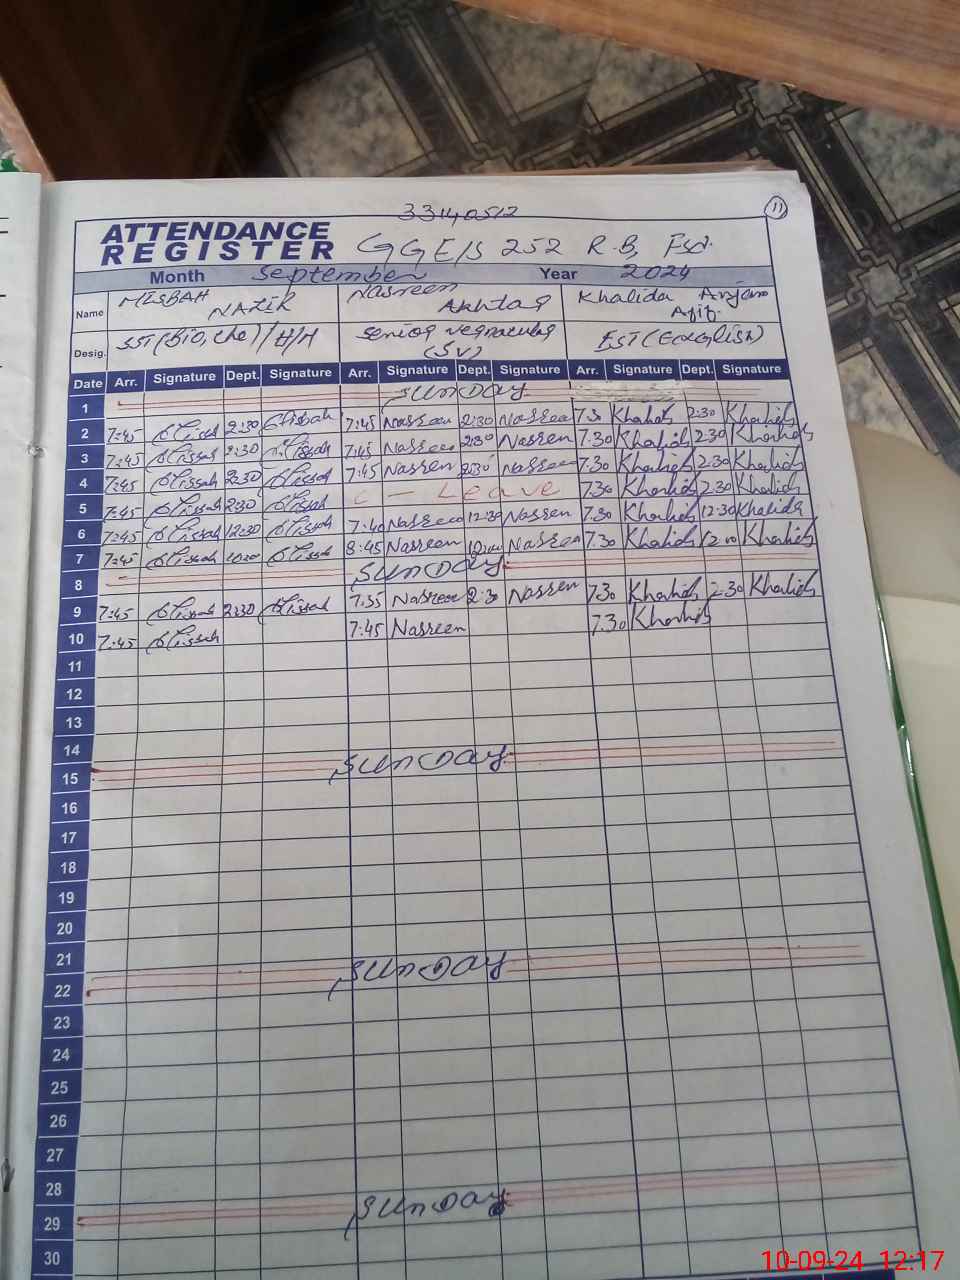 33140512
11
ATTENDANCE REGISTER GGE/S 252 R.B, Fsd.
Month September Year 2024
Name MISBAH NAZIR Nasreen Akhtar Khalida Anjum
Desig. SST(Bio, Che)/H/H Senior Vernacular (SV) EST(English)
Date Arr. Signature Dept. Signature Arr. Signature Dept. Signature Arr. Signature Dept. Signature
1 SUNDAY
2 7:45 2:30 7:45 Nasreen 2:30 Nasreen 7.3 Khalida 2:30 Khalida
3 7:45 2:30 7:45 Nasreen 2:30 Nasreen 7.30 Khalida 2.30 Khalida
4 7:45 2:30 7:45 Nasreen 2:30 Nasreen 7.30 Khalida 2.30 Khalida
5 7:45 2:30 C - Leave 7.30 Khalida 2.30 Khalida
6 7:45 12:30 7:40 Nasreen 12:30 Nasreen 7.30 Khalida 12:30 Khalida
7 7:45 8:45 Nasreen Nasreen 7.30 Khalida Khalida
8 SUNDAY
9 7:45 2:30 7:35 Nasreen 2:30 Nasreen 7.30 Khalida 2.30 Khalida
10 7:45 7:45 Nasreen 7.30 Khalida
11
12
13
14
15 SUNDAY
16
17
18
19
20
21
22 SUNDAY
23
24
25
26
27
28
29 SUNDAY
30
10-09-24 12:17